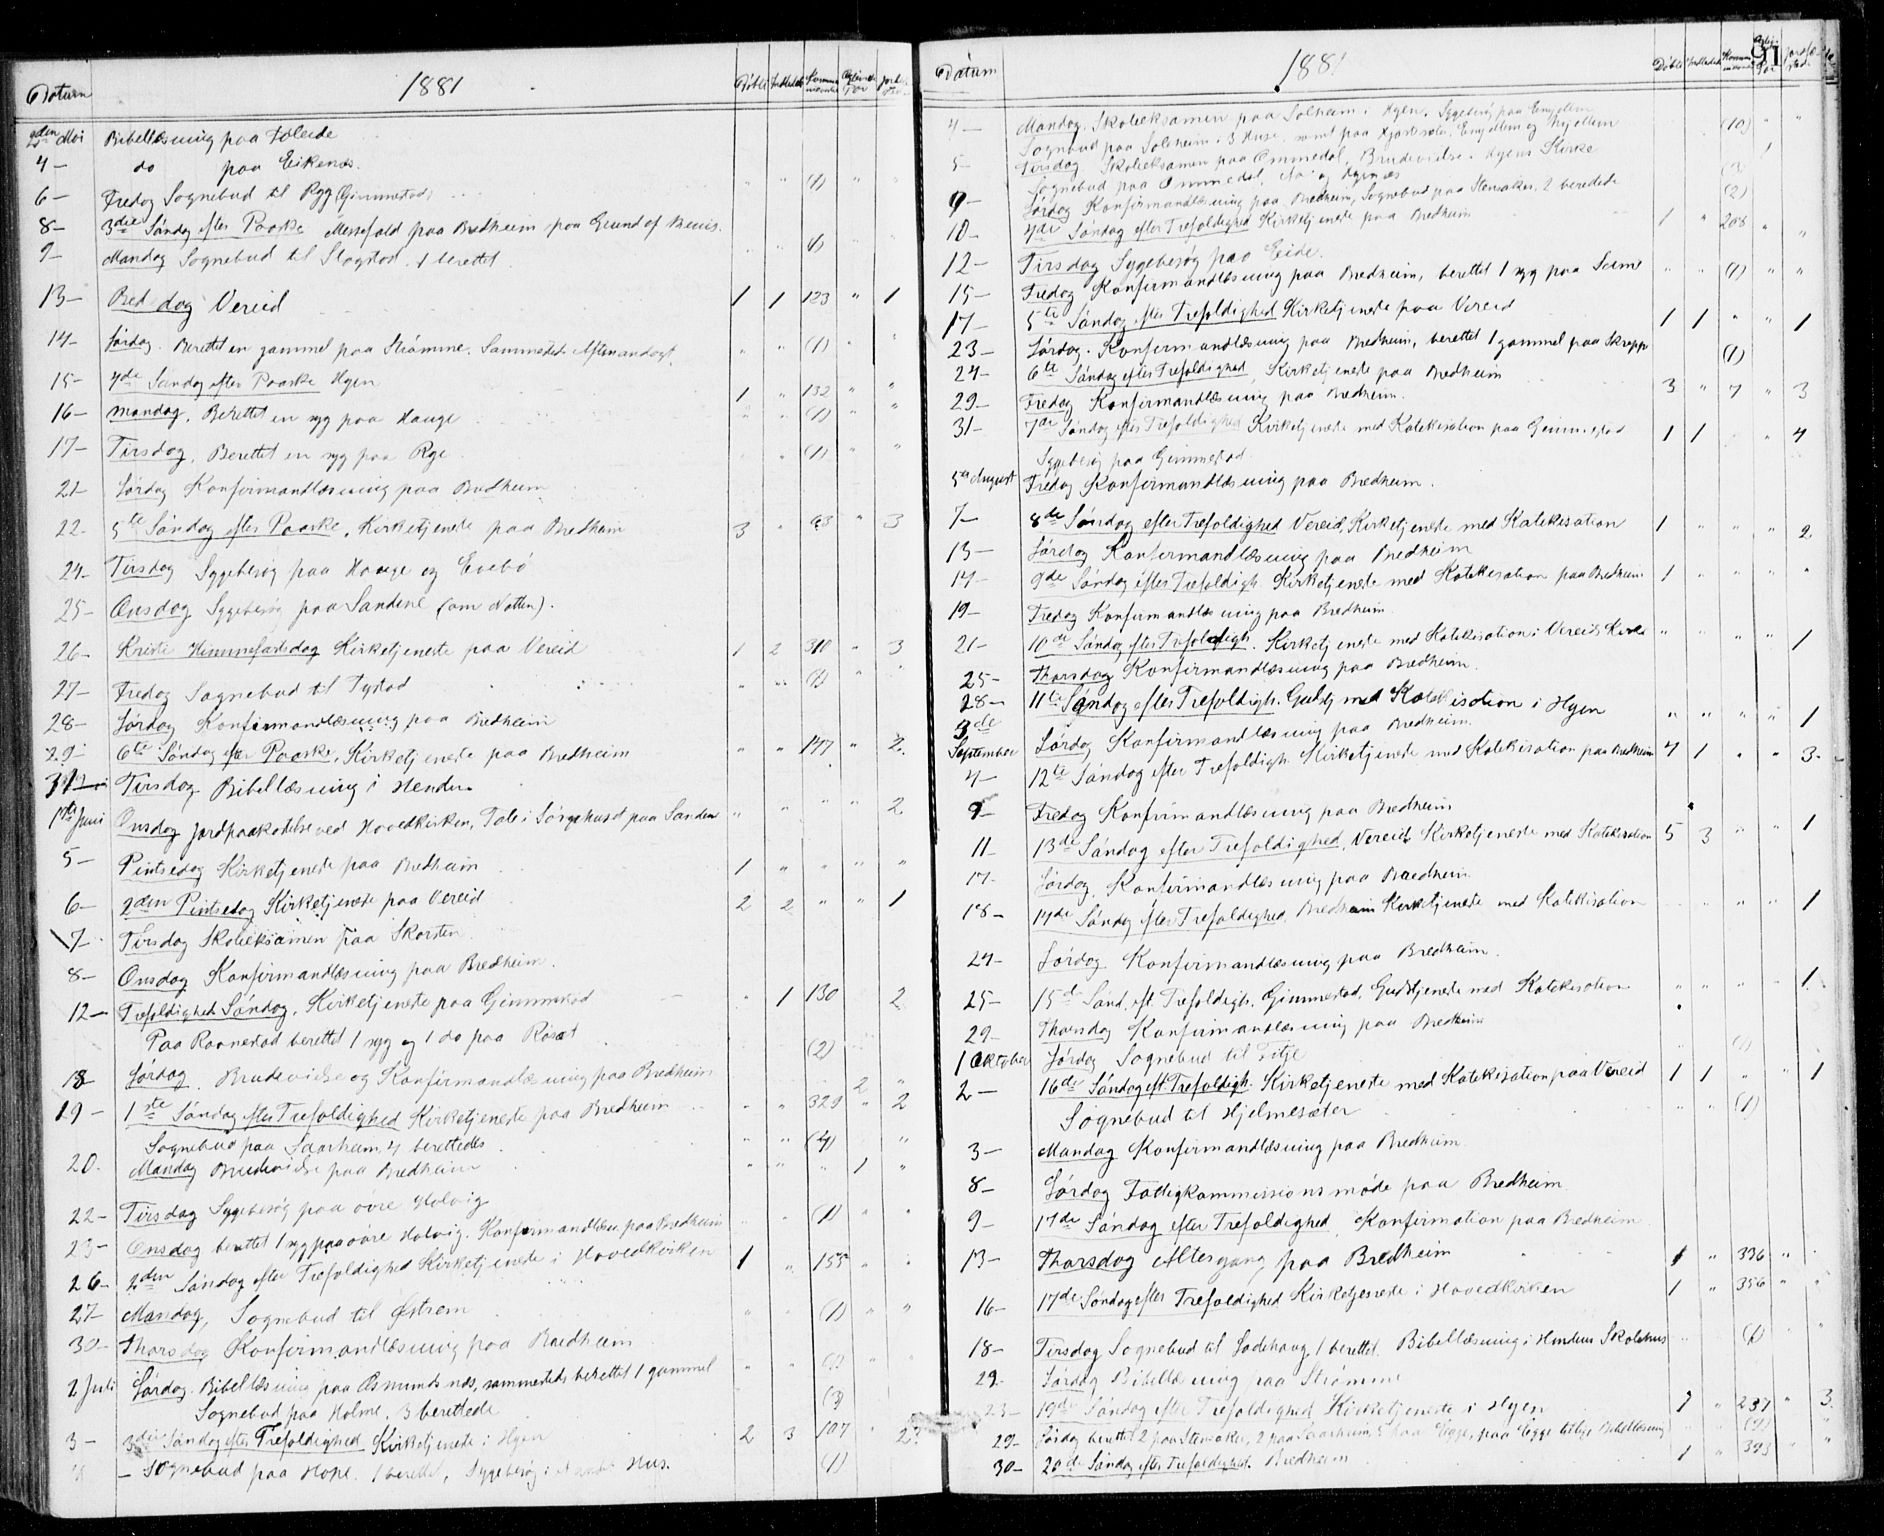 Datum 1881 Døbte Indledede
2den Mai Bibellæsning paa
4 — do paa Eikenæs.
6 — Fredag Sognebud til Ryg (Gimmestad) " " (1) " "
8 — 3die Søndag efter Paaske Messefald paa Bredheim paa Grund af
9 — Mandag Sognebud til 1 berettet (1)
13 — Bededag Vereid 1 1 123 " 1
14 — Lørdag. Berettet en gammel paa Strømme. Sammesteds Aftenandagt " " (1) " "
15 — 4de Søndag efter Paaske Hyen 1 " 132 " "
16 — Mandag. Berettet en syg paa Hauge " " (1) " "
17 — Tirsdag. Berettet en syg paa Ryg " " (1) "
21 — Lørdag Konfirmandlæsning paa Bredheim
22 — 5te Søndag efter Paaske. Kirketjeneste paa Bredheim 3 " 93 " 3
24 — Tirsdag Sygebesøg paa Hauge og Evebø
25 — Onsdag Sygebesøg paa Sandene (om Natten).
26 — Kristi Himmelfartsdag Kirketjeneste paa Vereid 1 2 310 " 3
27 — Fredag Sognebud til Tystad " " (1) "
28 — Lørdag Konfirmandlæsning paa Bredheim
29 — 6te Søndag efter Paaske. Kirketjeneste paa Bredheim " " 147 " 2
31 — Tirsdag Bibellæsning i Henden
1ste Juni Onsdag Jordpaakastelse ved Hovedkirken, Tale i Sørgehuset paa Sanden " " " " 2
5 — Pintsedag Kirketjeneste paa Bredheim 1 " " " "
6 — 2den Pintsedag Kirketjeneste paa Vereid 2 2 " " 1
7 — Tirsdag Skoleeksamen paa Skorten
8 — Onsdag Konfirmandlæsning paa Bredheim.
12 — Trefoldighed Søndag. Kirketjeneste paa Gimmestad " 1 130 2
Paa Raanestad berettet 1 syg og 1 do paa (2)
18 Lørdag. Brudevielse og Konfirmandlæsning paa Bredheim 2 "
19 — 1ste Søndag efter Trefoldighed Kirketjeneste paa Bredheim " " 329 " 2
Sognebud paa Saarheim, 4 berettedes " " (4) "
20. Mandag Brudevielse paa Bredheim " " " 1 "
22 — Tirsdag Sygebesøg paa øvre Holvig (1) " "
23 — Onsdag berettet 1 syg paa øvre Holvig. Konfirmandlæsn paa Bredheim
26 — 2den Søndag efter Trefoldighed Kirketjeneste i Hovedkirken 1 " 155 " "
27 — Mandag, Sognebud til Østrem " " (1) " "
30 — Thorsdag Konfirmandlæsning paa Bredheim
2 Juli Lørdag. Bibellæsning paa Osmundsnæs, sammesteds berettet 1 gammel " "
Sognebud paa Holme. 3 berettede (3)
3 — 3die Søndag efter Trefoldighed Kirketjeneste i Hyen 2 3 107 " 2
— Sognebud paa Hope. 1 berettet, Sygebesøg i et andet Hus. (1)
Datum 1881 91 Døbte Indledede
4 — Mandag. Skoleeksamen paa Solheim i Hyen. Sygebesøg paa (10) " "
Sognebud paa Solheim i 3 Huse, samt paa
5 — Tirsdag Skoleeksamen paa Ommedal. Brudevielse i Hyens Kirke
Sognebud paa Ommedal, og (3)
9 — Lørdag Konfirmandlæsning paa Bredheim, Sognebud paa Stensaker, 2 berettede (2)
10 — 4de Søndag efter Trefoldighed Kirketjeneste paa Bredheim 1 " 208 " "
12 — Tirsdag Sygebesøg paa Eide.
15 — Fredag Konfirmandlæsning paa Bredheim, berettet 1 syg paa " " (1) " "
17 — 5te Søndag efter Trefoldighed Kirketjeneste paa Vereid 1 1 " " 1
23 — Lørdag. Konfirmandlæsning paa Bredheim, berettet 1 gammel paa (1)
24 — 6te Søndag efter Trefoldighed, Kirketjeneste paa Bredheim 3 " 7 " 3
29 — Fredag Konfirmandlæsning paa Bredheim.
31 — 7de Søndag efter Trefoldighed Kirketjeneste med Katekisation paa Gimmestad 1 1 " 4
Sygebesøg paa Gimmestad
5te August Fredag Konfirmandlæsning paa Bredheim.
7 — 8de Søndag efter Trefoldighed Vereid, Kirketjeneste med Katekisation 1 " " " 2
13 — Lørdag Konfirmandlæsning paa Bredheim
14 — 9de Søndag efter Trefoldigh. Kirketjeneste med Katekisation paa Bredheim 1 " " " "
19 — Fredag Konfirmandlæsning paa Bredheim.
21 — 10de Søndag efter Trefoldigh. Kirketjeneste med Katekisation i Vereid Kirke " " " " 1
25 — Thorsdag Konfirmandlæsning paa Bredheim.
28 — 11te Søndag efter Trefoldigh. Gudstj med Katekisation i Hyen " " " " 1
3de September Lørdag Konfirmandlæsning paa Bredheim.
4 — 12te Søndag efter Trefoldigh. Kirketjeneste med Katekisation paa Bredheim 4 1 " " 3
9 — Fredag Konfirmandlæsning paa Bredheim
11 — 13de Søndag efter Trefoldighed, Vereid. Kirketjeneste med Katekisation 5 3 " " 1
17 — Lørdag. Konfirmandlæsning paa Bredheim
18 — 14de Søndag efter Trefoldighed, Bredheim Kirketjeneste med Katekisation 1
24 — Lørdag Konfirmandlæsning paa Bredheim.
25 — 15de Sønd. eft. Trefoldigh. Gimmestad, Gudstjeneste med Katekisation " " " " 1
29 — Thorsdag Konfirmandlæsning paa Bredheim
1 Oktober Lørdag Sognebud til Fitje (1)
2 — 16de Søndag eft. Trefoldigh. Kirketjeneste med Katekisation paa Vereid 1 1 " " 1
Sognebud til Hjelmesæter " " (1)
3 — Mandag Konfirmandlæsning paa Bredheim
8 — Lørdag Fattigkommissionsmøde paa Bredheim
9 — 17de Søndag efter Trefoldighed, Konfirmation paa Bredheim
13 — Thorsdag Altergang paa Bredheim 1 " 336 " "
16 — 17de Søndag efter Trefoldighed Kirketjeneste i Hovedkirken 1 " 356 " "
18 — Tirsdag Sognebud til Ladehaug, 1 berettet. Bibellæsning i Hendens Skolehus (1)
22 — Lørdag Bibellæsning paa Strømme
23 — 19de Søndag efter Trefoldighed Kirketjeneste i Hyen 1 " 237 " 3
29 — Lørdag berettet 2 paa Stensaker, 2 paa Saarheim, 5 paa Egge, paa Egge tillige Bibellæsning (9)
30 — 20de Søndag efter Trefoldighed. Bredheim 1 " 393 "